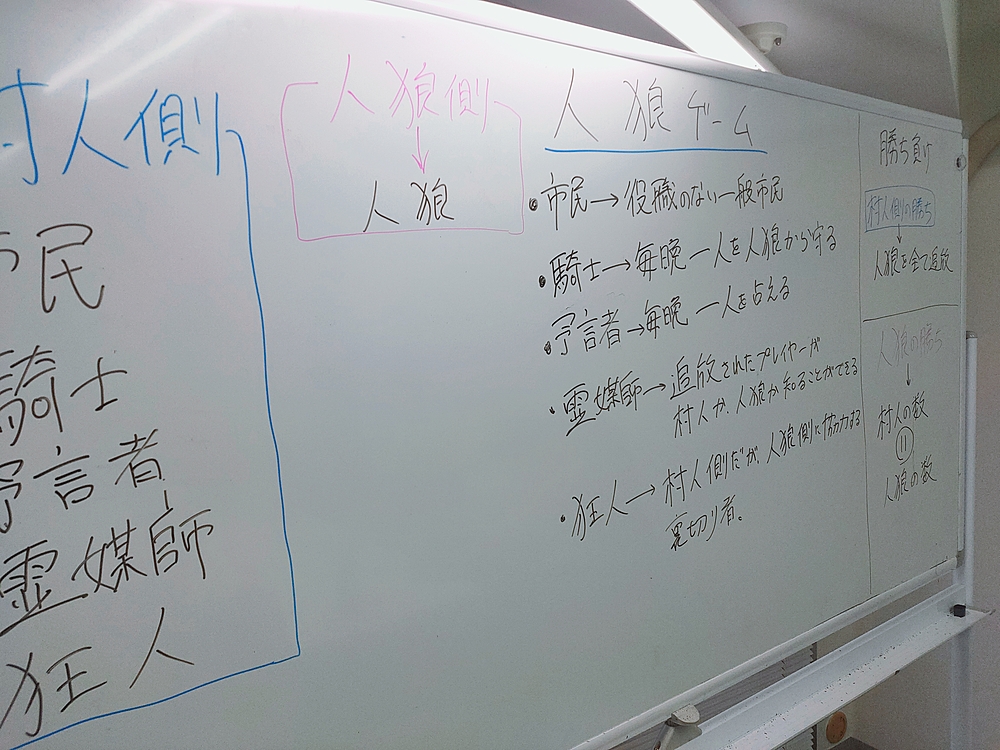 村人側
市民
騎士
予言者
霊媒師
狂人
人狼側
↓
人狼
人狼ゲーム
・市民→役職のない一般市民
・騎士→毎晩一人を人狼から守る
・予言者→毎晩一人を占える
・霊媒師→追放されたプレイヤーが
村人か、人狼か知ることができる
・狂人→村人側だが、人狼側に協力する
裏切り者。
勝ち負け
村人側の勝ち
↓
人狼を全て追放
人狼の勝ち
↓
村人の数
=
人狼の数